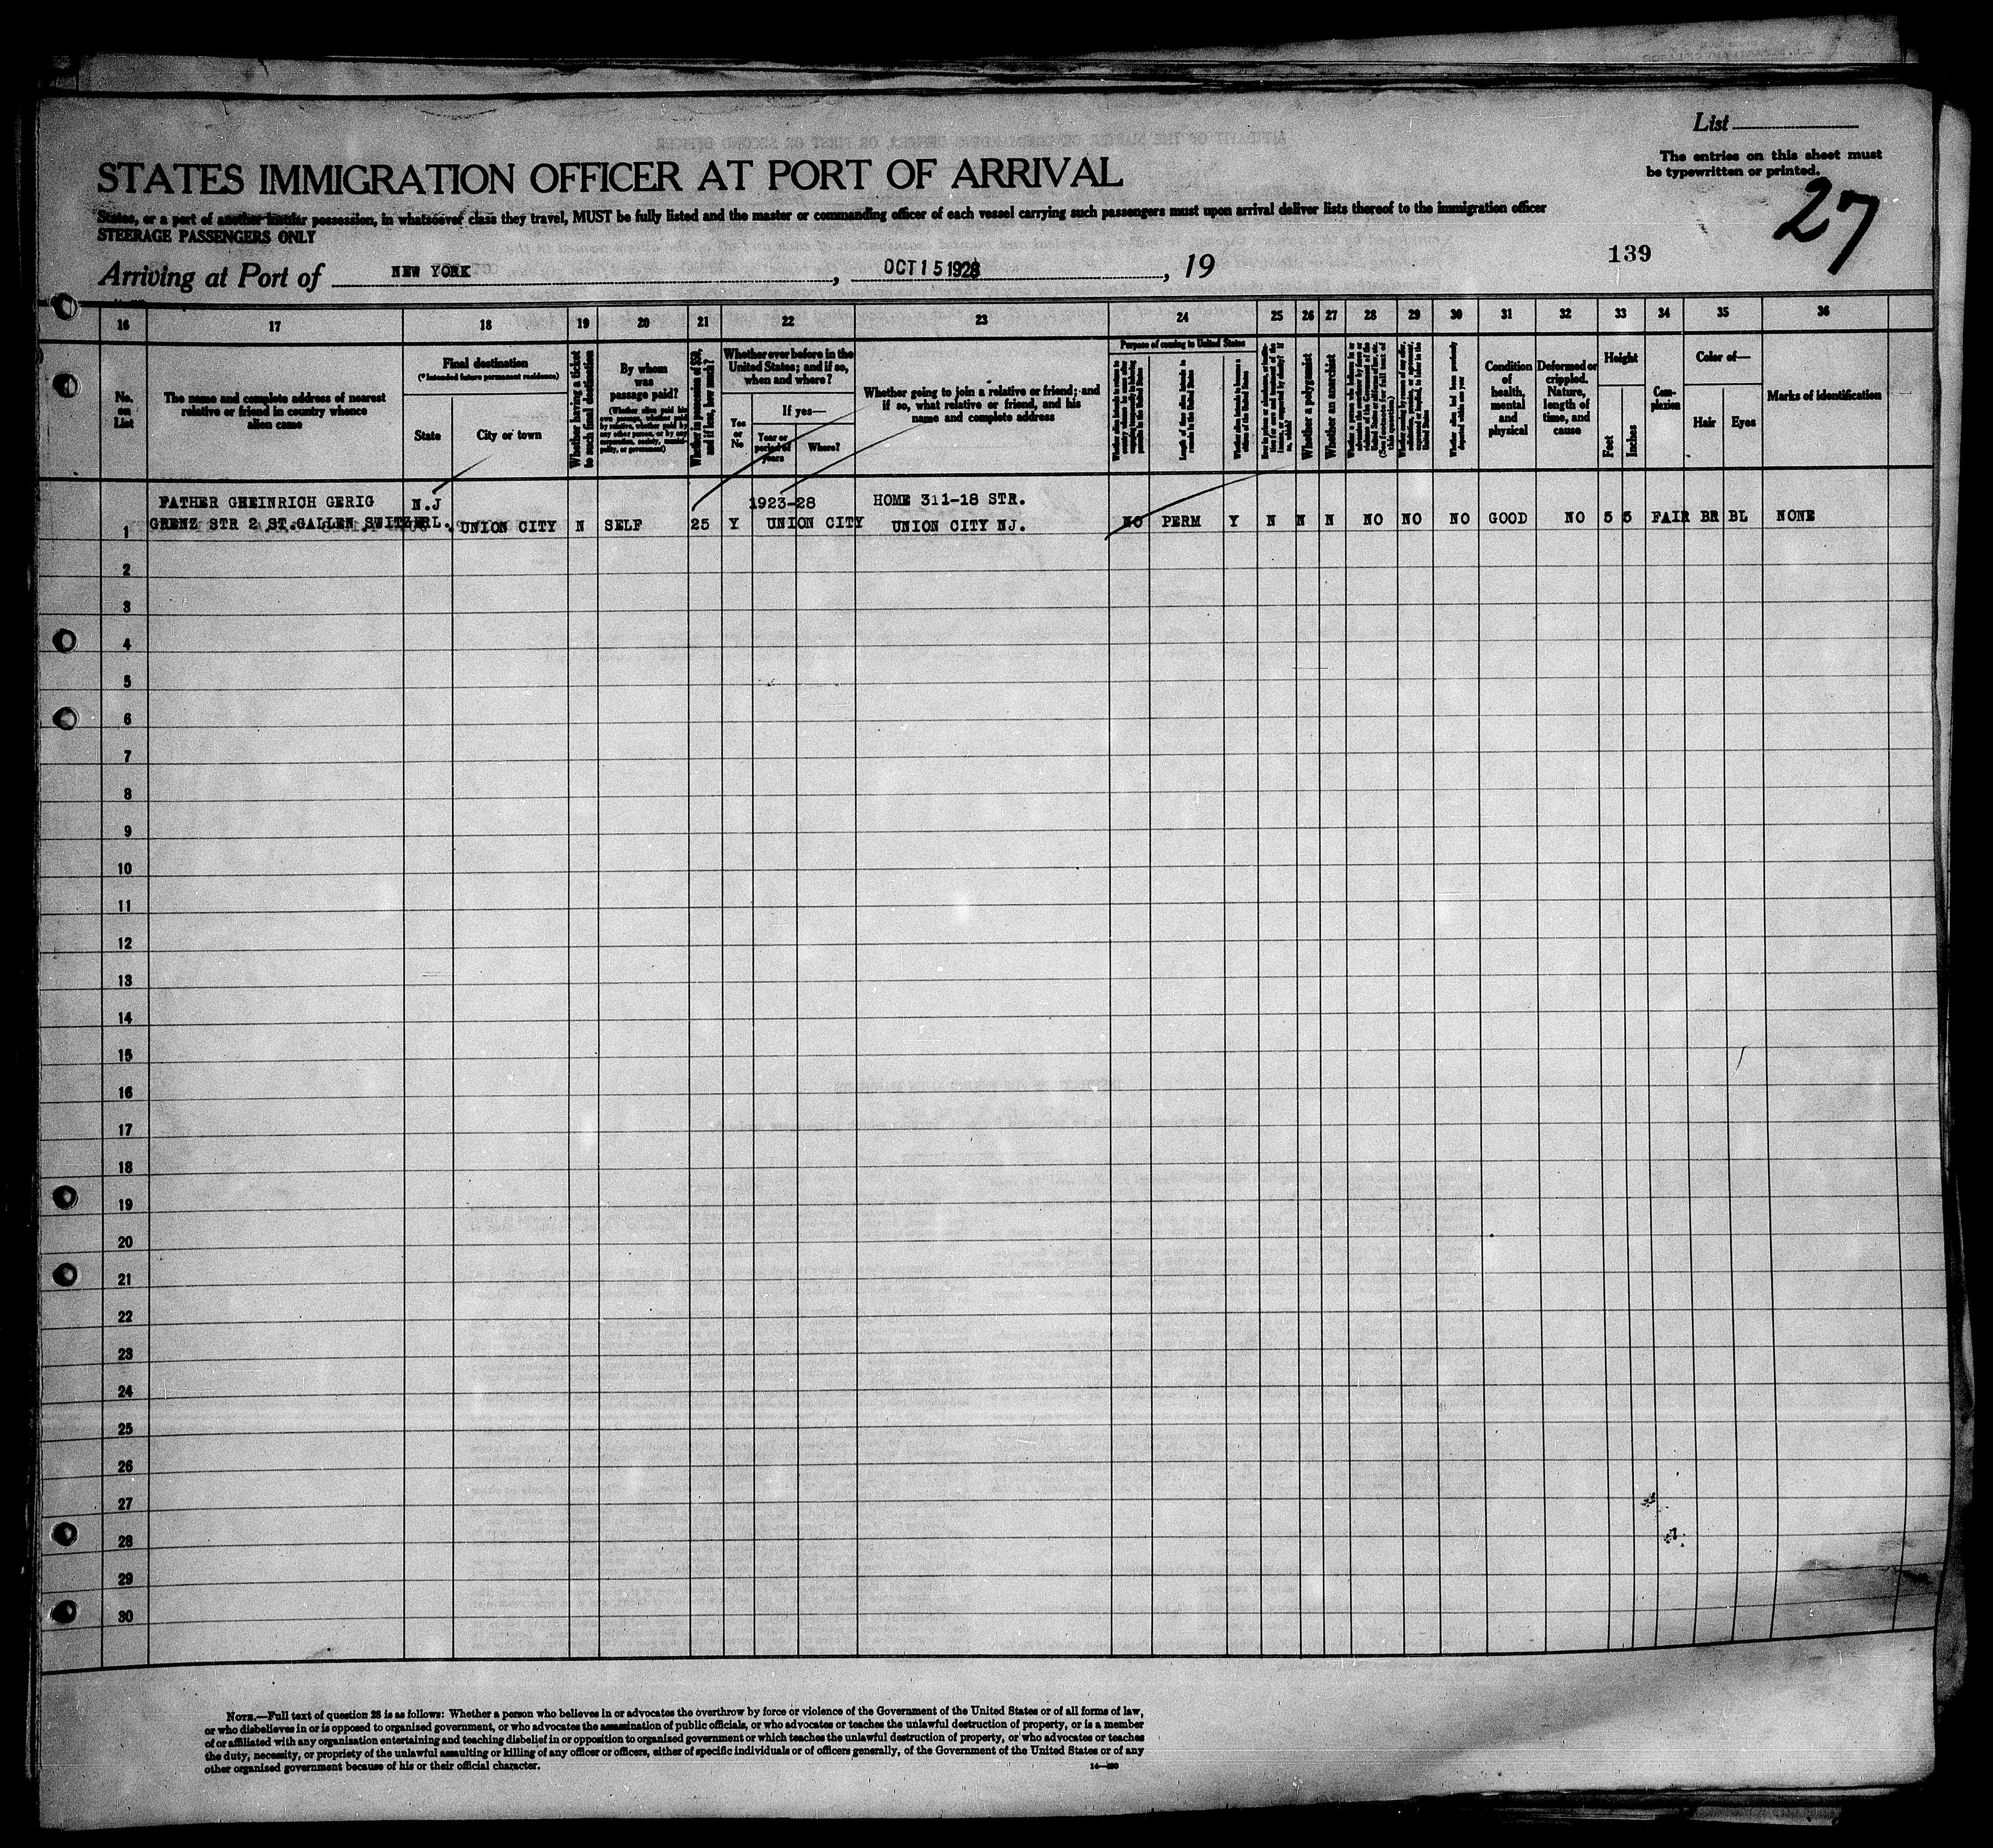 List
The entries on this sheet must
be typewritten or printed.
27
STATES IMMIGRATION OFFICER AT PORT OF ARRIVAL
States, or a port of another insular possession, in whatsoever class they travel, MUST be fully listed and the master or commanding officer of each vessel carrying such passengers must upon arrival deliver lists thereof to the immigration officer
STEERAGE PASSENGERS ONLY
139
Arriving at Port of NEW YORK, OCT 15 1928, 19
16 17 18 19 20 21 22 23 24 25 26 27 28 29 30 31 32 33 34 35 36
No.
on
List
The name and complete address of nearest
relative or friend in country whence
alien came
Final destination
(* Intended future permanent residence)
State
City or town
Whether having a ticket
to such final destination
By whom
was
passage paid?
Whether in possession of $50,
and if less, how much?
Whether ever before in the
United States; and if so,
when and where?
Yes
or
No
If yes—
Year or
period of
years
Where?
Whether going to join a relative or friend; and
if so, what relative or friend, and his
name and complete address
Purpose of coming to United States
Length of time alien intends to
remain in the United States
Whether a polygamist
Whether an anarchist
Condition
of
health,
mental
and
physical
Deformed or
crippled.
Nature,
length of
time, and
cause
Height
Feet
Inches
Com-
plexion
Color of—
Hair
Eyes
Marks of identification
FATHER GHEINRICH GERIG N.J 1923-28 HOME 311-18 STR.
1 GRENZ STR 2 ST.GALLEN SWITZERL. UNION CITY N SELF 25 Y UNION CITY UNION CITY NJ. NO PERM Y N N N NO NO NO GOOD NO 5 5 FAIR BR BL NONE
2
3
4
5
6
7
8
9
10
11
12
13
14
15
16
17
18
19
20
21
22
23
24
25
26
27
28
29
30
NOTE.—Full text of question 28 is as follows: Whether a person who believes in or advocates the overthrow by force or violence of the Government of the United States or of all forms of law,
or who disbelieves in or is opposed to organized government, or who advocates the assassination of public officials, or who advocates or teaches the unlawful destruction of property, or is a member
of or affiliated with any organization entertaining and teaching disbelief in or opposition to organized government or which teaches the unlawful destruction of property, or who advocates or teaches
the duty, necessity, or propriety of the unlawful assaulting or killing of any officer or officers, either of specific individuals or of officers generally, of the Government of the United States or of any
other organized government because of his or their official character.